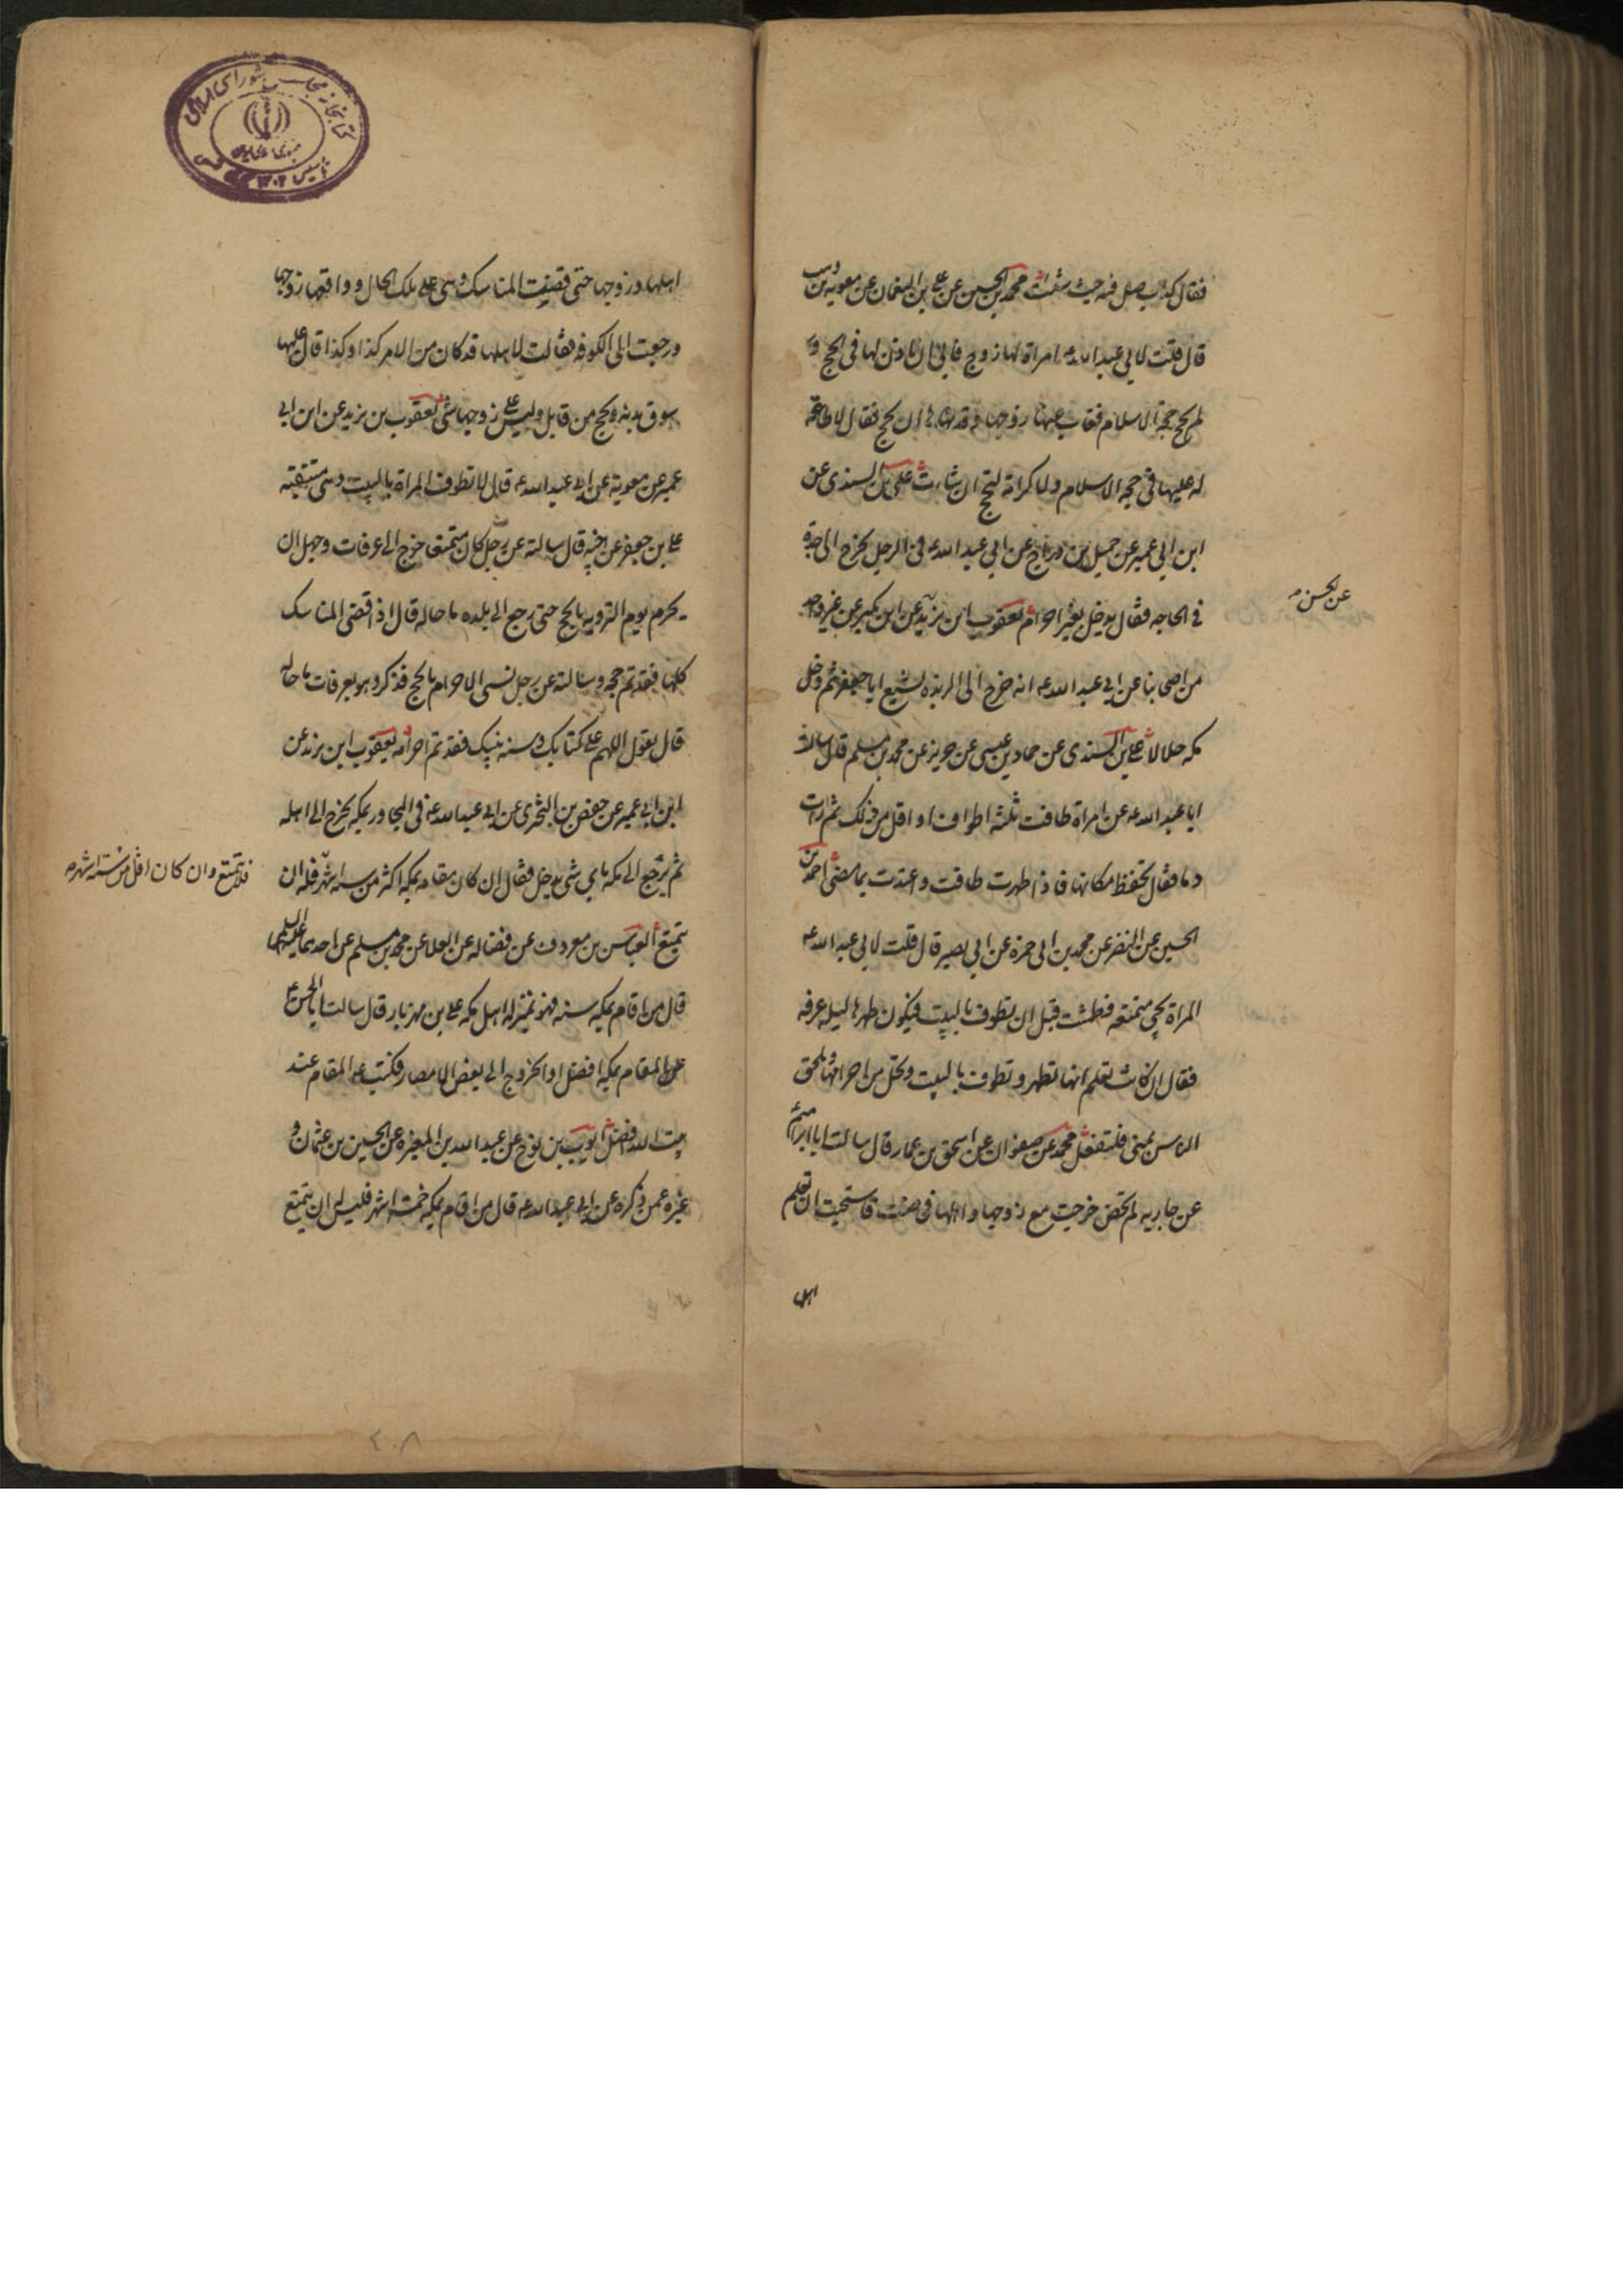 فقال كذب صل فيه حيث شئت محمد بن الحسين عن علي بن النعمان عن معوية بن وهب
قال قلت لابي عبد الله ع امراة لها زوج فابى ان ياذن لها في الحج و
لم تحج حجة الاسلام فغاب عنها زوجها وقد نهاها ان تحج فقال لا طاعة
له عليها في حجة الاسلام ولا كرامة لتحج ان شاءت علي بن السندي عن
ابن ابي عمير عن جميل بن دراج عن ابي عبد الله ع في الرجل يخرج الى جدة
في الحاجة فقال يدخل بغير احرام يعقوب ابن يزيد عن ابن بكير عن غير واحد
عن الحسن
من اصحابنا عن ابي عبد الله ع انه خرج الى الربذه يشيع ابا جعفر ثم دخل
مكه حلالا علي بن السندي عن حماد بن عيسى عن حريز عن محمد بن مسلم قال سالت
ابا عبد الله ع عن امراة طافت ثلثة اطواف او اقل من ذلك ثم رات
دما فقال تحفظ مكانها فاذا طهرت طافت واعتدت بما مضى احمد بن
الحسين عن النضر عن محمد بن ابي حمزة عن ابي بصير قال قلت لابي عبد الله ع
المراة تجي متمتعه فطمثت قبل ان تطوف بالبيت فيكون طهرها ليله عرفه
فقال ان كانت تعلم انها تطهر وتطوف بالبيت وتحل من احرامها وتلحق
الناس بمنى فلتفعل محمد عن صفوان عن اسحق بن عمار قال سالت ابا ابراهيم
عن جاريه لم تحض خرجت مع زوجها واهلها فحاضت فاستحيت ان تعلم
اهلها
اهلها وزوجها حتى قضيت المناسك وهي على تلك الحال وواقعها زوجها
ورجعت الى الكوفه فقالت لاهلها قد كان من الامر كذا وكذا قال عليها
سوق بدنه وتحج من قابل وليس على زوجها شي يعقوب بن يزيد عن ابن ابي
عمير عن معوية عن ابي عبد الله ع قال لا تطوف المراة بالبيت وهي متنقبه
علي بن جعفر عن اخيه قال سالته عن رجل كان متمتعا خرج الى عرفات وجهل ان
يحرم يوم الترويه بالحج حتى رجع الى بلده ما حاله قال اذا قضى المناسك
كلها فقد تم حجه وسالته عن رجل نسي الاحرام بالحج فذكر وهو بعرفات ما حاله
قال يقول اللهم على كتابك وسنه نبيك فقد تم احرامه يعقوب ابن يزيد عن
ابن ابي عمير عن حفص بن البختري عن ابي عبد الله ع في المجاور بمكه يخرج الى اهله
ثم يرجع الى مكه باي شي يدخل فقال ان كان مقامه بمكه اكثر من سته اشهر فله ان
فلا يتمتع وان كان اقل من سته اشهر
يتمتع العباس بن معروف عن فضاله عن العلا عن محمد بن مسلم عن احدهما عليهما السلم
قال من اقام بمكه سنه فهو بمنزله اهل مكه علي بن مهزيار قال سالت ابا الحسن ع
عن المقام بمكه افضل او الخروج الى بعض الامصار فكتب ع المقام عند
بيت الله افضل ايوب بن نوح عن عبد الله بن المغيره عن الحسين بن عثمان و
غيره عمن ذكره عن ابي عبد الله ع قال من اقام بمكه خمسة اشهر فليس له ان يتمتع
٤٠٨